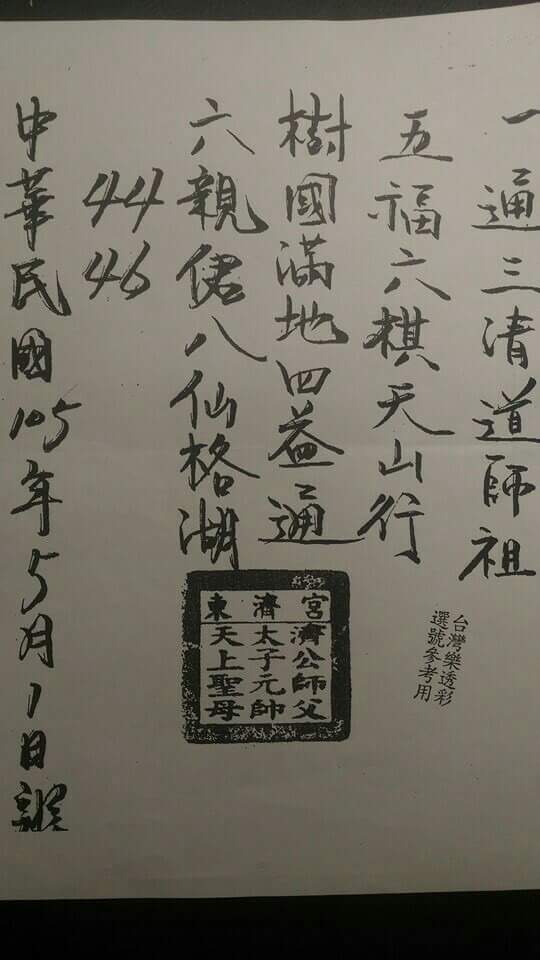 一通三清道師祖
五福六棋天山行
樹國滿地四益通
六親偌八仙格湖
44
46
中華民國105年5月1日
台灣樂透彩
選號參考用
東濟宮
濟公師父
太子元帥
天上聖母